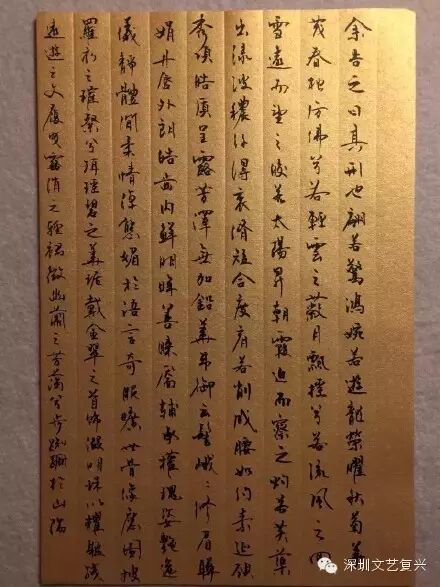 余告之曰其刑也翩若驚鴻婉若遊龍榮曜秋菊華
茂春松仿佛兮若輕雲之蔽月飄搖兮若流風之回
雪遠而望之皎若太陽昇朝霞迫而察之灼若芙蕖
出淥波穠纖得衷脩短合度肩若削成腰如約素延頸
秀項皓質呈露芳澤無加鉛華弗御云髻峨々修眉聯
娟丹唇外朗皓齒內鮮明眸善睞靨輔承權瑰姿艷逸
儀靜體閒柔情綽態媚於語言奇服曠世骨像應圖披
羅衣之璀粲兮珥瑤碧之華琚戴金翠之首飾綴明珠以耀軀踐
遠遊之文履曳霧綃之輕裾微幽蘭之芳藹兮步踟躕於山隅
深圳文艺复兴